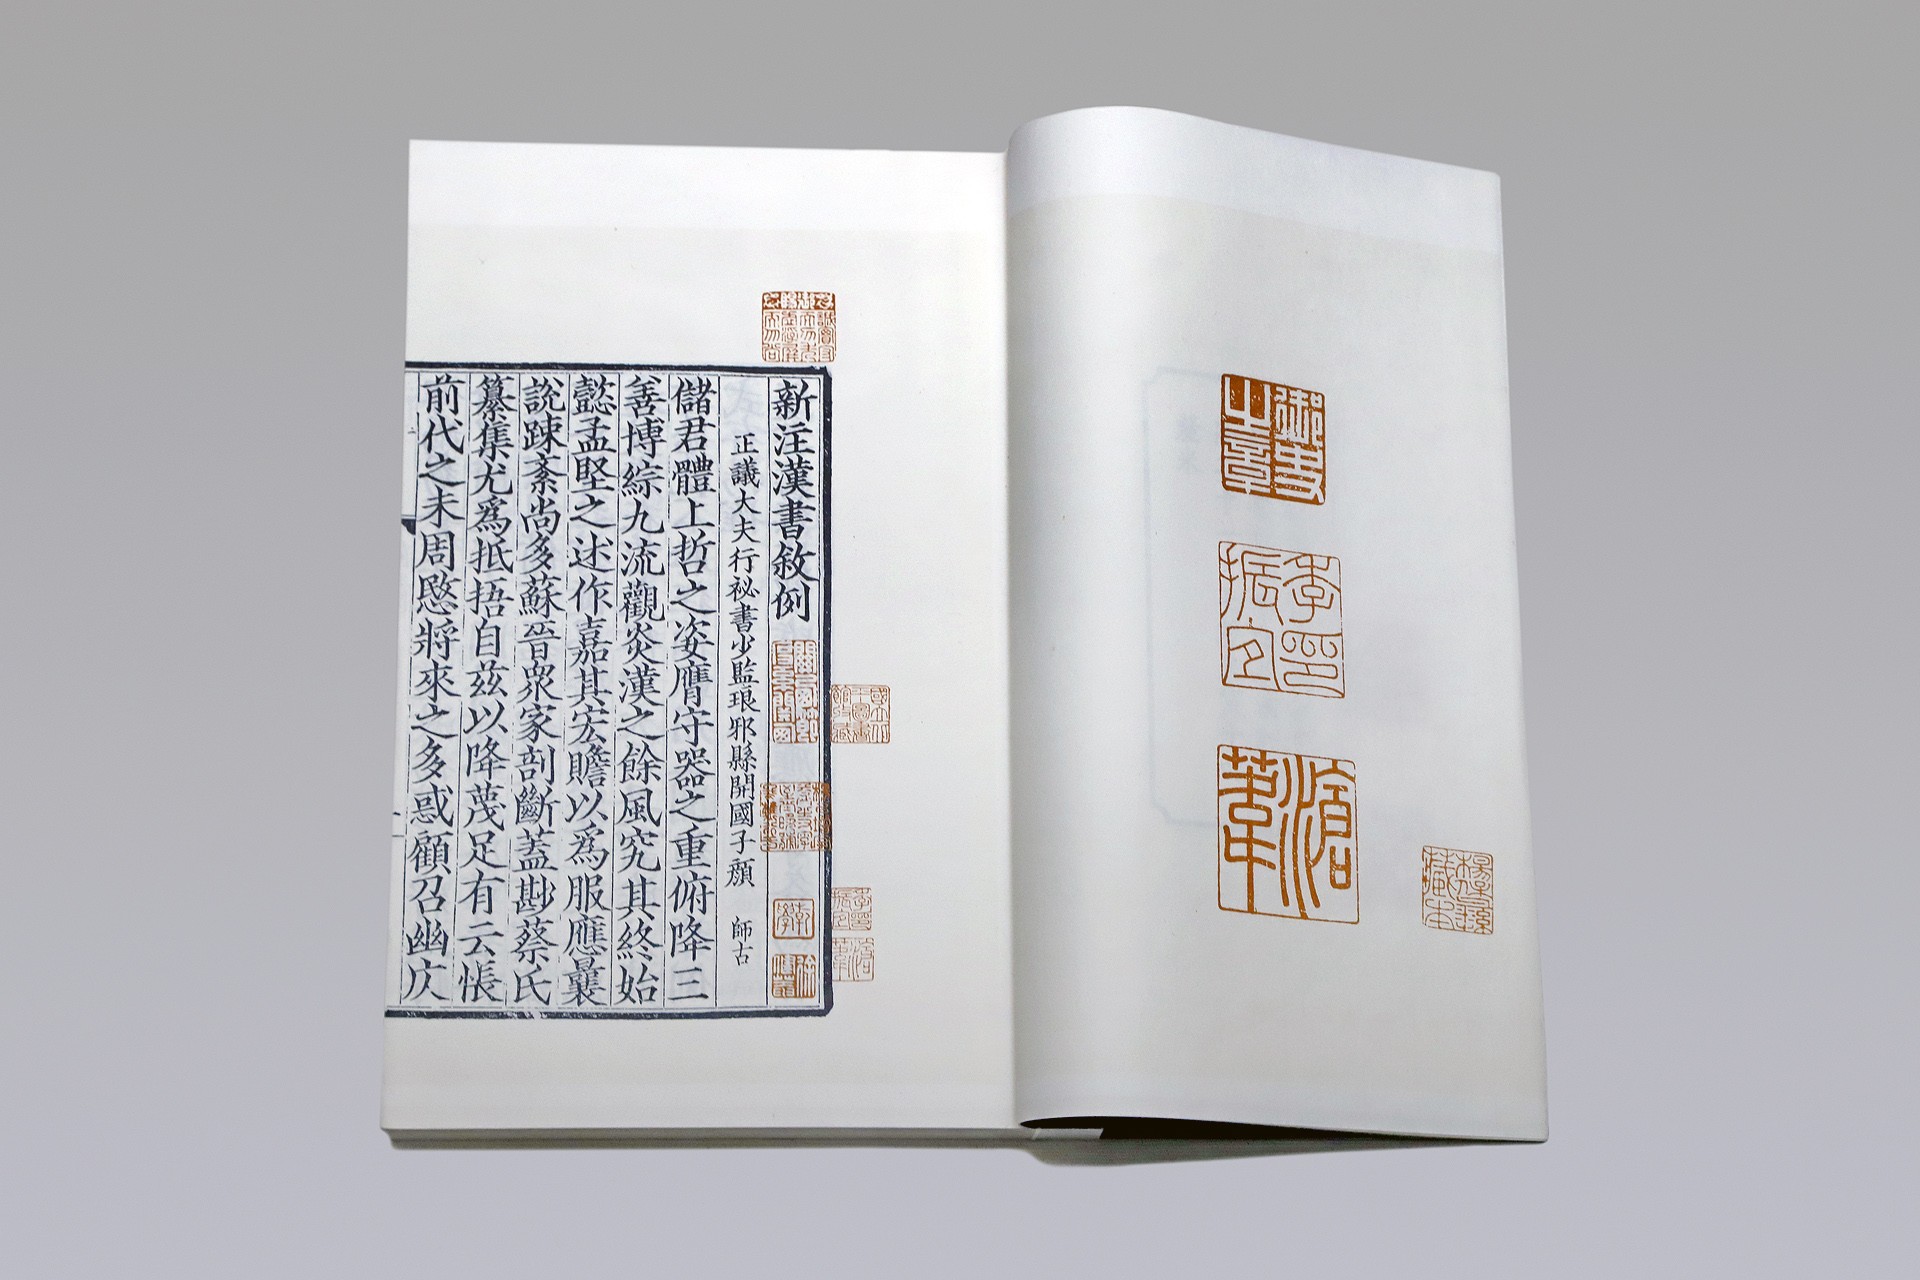 御史之章
季印振宜
滄葦
楊保彝藏本
新注漢書敘例
乾學
徐健菴
季印振宜
滄葦
正議大夫行祕書少監琅邪縣開國子顏 師古
儲君體上哲之姿膺守器之重俯降三
善博綜九流觀炎漢之餘風究其終始
懿孟堅之述作嘉其宏贍以爲服應曩
說踈紊尚多蘇晉衆家剖斷蓋尠蔡氏
纂集尤爲抵捂自茲以降蔑足有云悵
前代之未周愍將來之多惑顧召幽庂